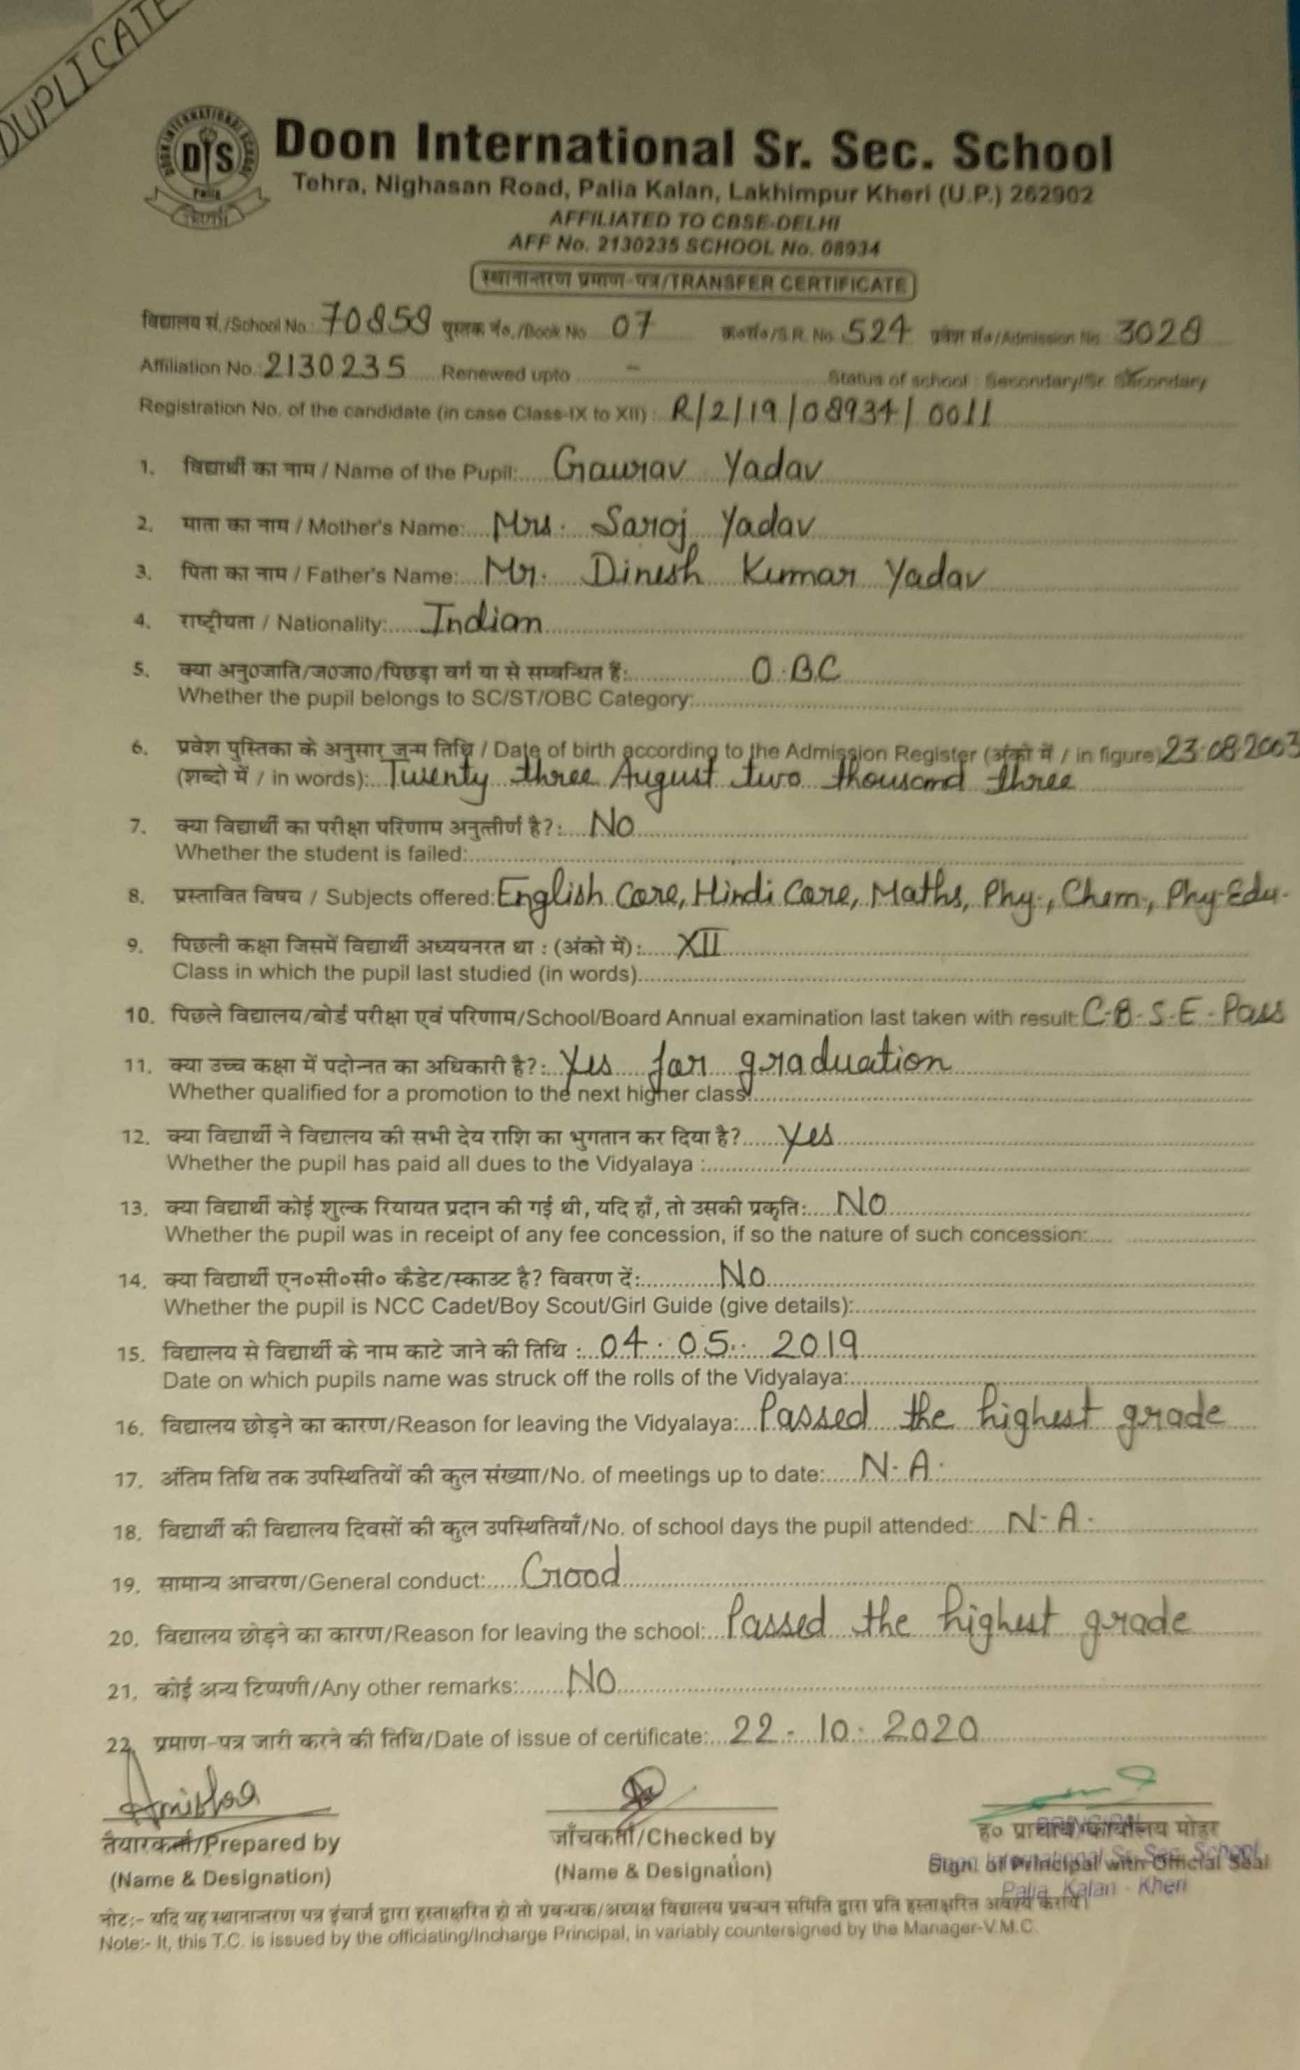 DUPLICATE
DOON INTERNATIONAL SCHOOL
DIS
PALIA
TRUTH
Doon International Sr. Sec. School
Tehra, Nighasan Road, Palia Kalan, Lakhimpur Kheri (U.P.) 262902
AFFILIATED TO CBSE-DELHI
AFF No. 2130235 SCHOOL No. 08934
स्थानान्तरण प्रमाण-पत्र/TRANSFER CERTIFICATE
विद्यालय सं./School No.: 70858 पुस्तक नं०./Book No. 07 क्र०सं०/S.R. No. 524 प्रवेश सं०/Admission No. 3028
Affiliation No. 2130235 Renewed upto - Status of school : Secondary/Sr. Secondary
Registration No. of the candidate (in case Class-IX to XII) : R/2/19/08934/0011
1. विद्यार्थी का नाम / Name of the Pupil: Gaurav Yadav
2. माता का नाम / Mother's Name: Mrs. Saroj Yadav
3. पिता का नाम / Father's Name: Mr. Dinesh Kumar Yadav
4. राष्ट्रीयता / Nationality: Indian
5. क्या अनु०जाति/ज०जा०/पिछड़ा वर्ग या से सम्बन्धित हैं: O.B.C
Whether the pupil belongs to SC/ST/OBC Category:
6. प्रवेश पुस्तिका के अनुसार जन्म तिथि / Date of birth according to the Admission Register (अंको में / in figure) 23.08.2003
(शब्दो में / in words): Twenty three August two thousand three
7. क्या विद्यार्थी का परीक्षा परिणाम अनुत्तीर्ण है?: No
Whether the student is failed:
8. प्रस्तावित विषय / Subjects offered: English Core, Hindi Core, Maths, Phy., Chem., Phy-Edu.
9. पिछली कक्षा जिसमें विद्यार्थी अध्ययनरत था : (अंको में): XII
Class in which the pupil last studied (in words)
10. पिछले विद्यालय/बोर्ड परीक्षा एवं परिणाम/School/Board Annual examination last taken with result: C.B.S.E - Pass
11. क्या उच्च कक्षा में पदोन्नत का अधिकारी है?: Yes for graduation
Whether qualified for a promotion to the next higher class:
12. क्या विद्यार्थी ने विद्यालय की सभी देय राशि का भुगतान कर दिया है? Yes
Whether the pupil has paid all dues to the Vidyalaya :
13. क्या विद्यार्थी कोई शुल्क रियायत प्रदान की गई थी, यदि हाँ, तो उसकी प्रकृति: No
Whether the pupil was in receipt of any fee concession, if so the nature of such concession:
14. क्या विद्यार्थी एन०सी०सी० कैडेट/स्काउट है? विवरण दें: No
Whether the pupil is NCC Cadet/Boy Scout/Girl Guide (give details):
15. विद्यालय से विद्यार्थी के नाम काटे जाने की तिथि : 04.05.2019
Date on which pupils name was struck off the rolls of the Vidyalaya:
16. विद्यालय छोड़ने का कारण/Reason for leaving the Vidyalaya: Passed the highest grade
17. अंतिम तिथि तक उपस्थितियों की कुल संख्या/No. of meetings up to date: N.A.
18. विद्यार्थी की विद्यालय दिवसों की कुल उपस्थितियाँ/No. of school days the pupil attended: N.A.
19. सामान्य आचरण/General conduct: Good
20. विद्यालय छोड़ने का कारण/Reason for leaving the school: Passed the highest grade
21. कोई अन्य टिप्पणी/Any other remarks: No
22. प्रमाण-पत्र जारी करने की तिथि/Date of issue of certificate: 22-10-2020
तैयारकर्ता/Prepared by जाँचकर्ता/Checked by ह० प्राचार्य कार्यालय मोहर
PRINCIPAL
(Name & Designation) (Name & Designation) Sign. of Principal with Official Seal
Doon International Sr. Sec. School
Palia Kalan - Kheri
नोट:- यदि यह स्थानान्तरण पत्र इंचार्ज द्वारा हस्ताक्षरित हो तो प्रबन्धक/अध्यक्ष विद्यालय प्रबन्धन समिति द्वारा प्रति हस्ताक्षरित अवश्य करायें।
Note:- It, this T.C. is issued by the officiating/Incharge Principal, in variably countersigned by the Manager-V.M.C.